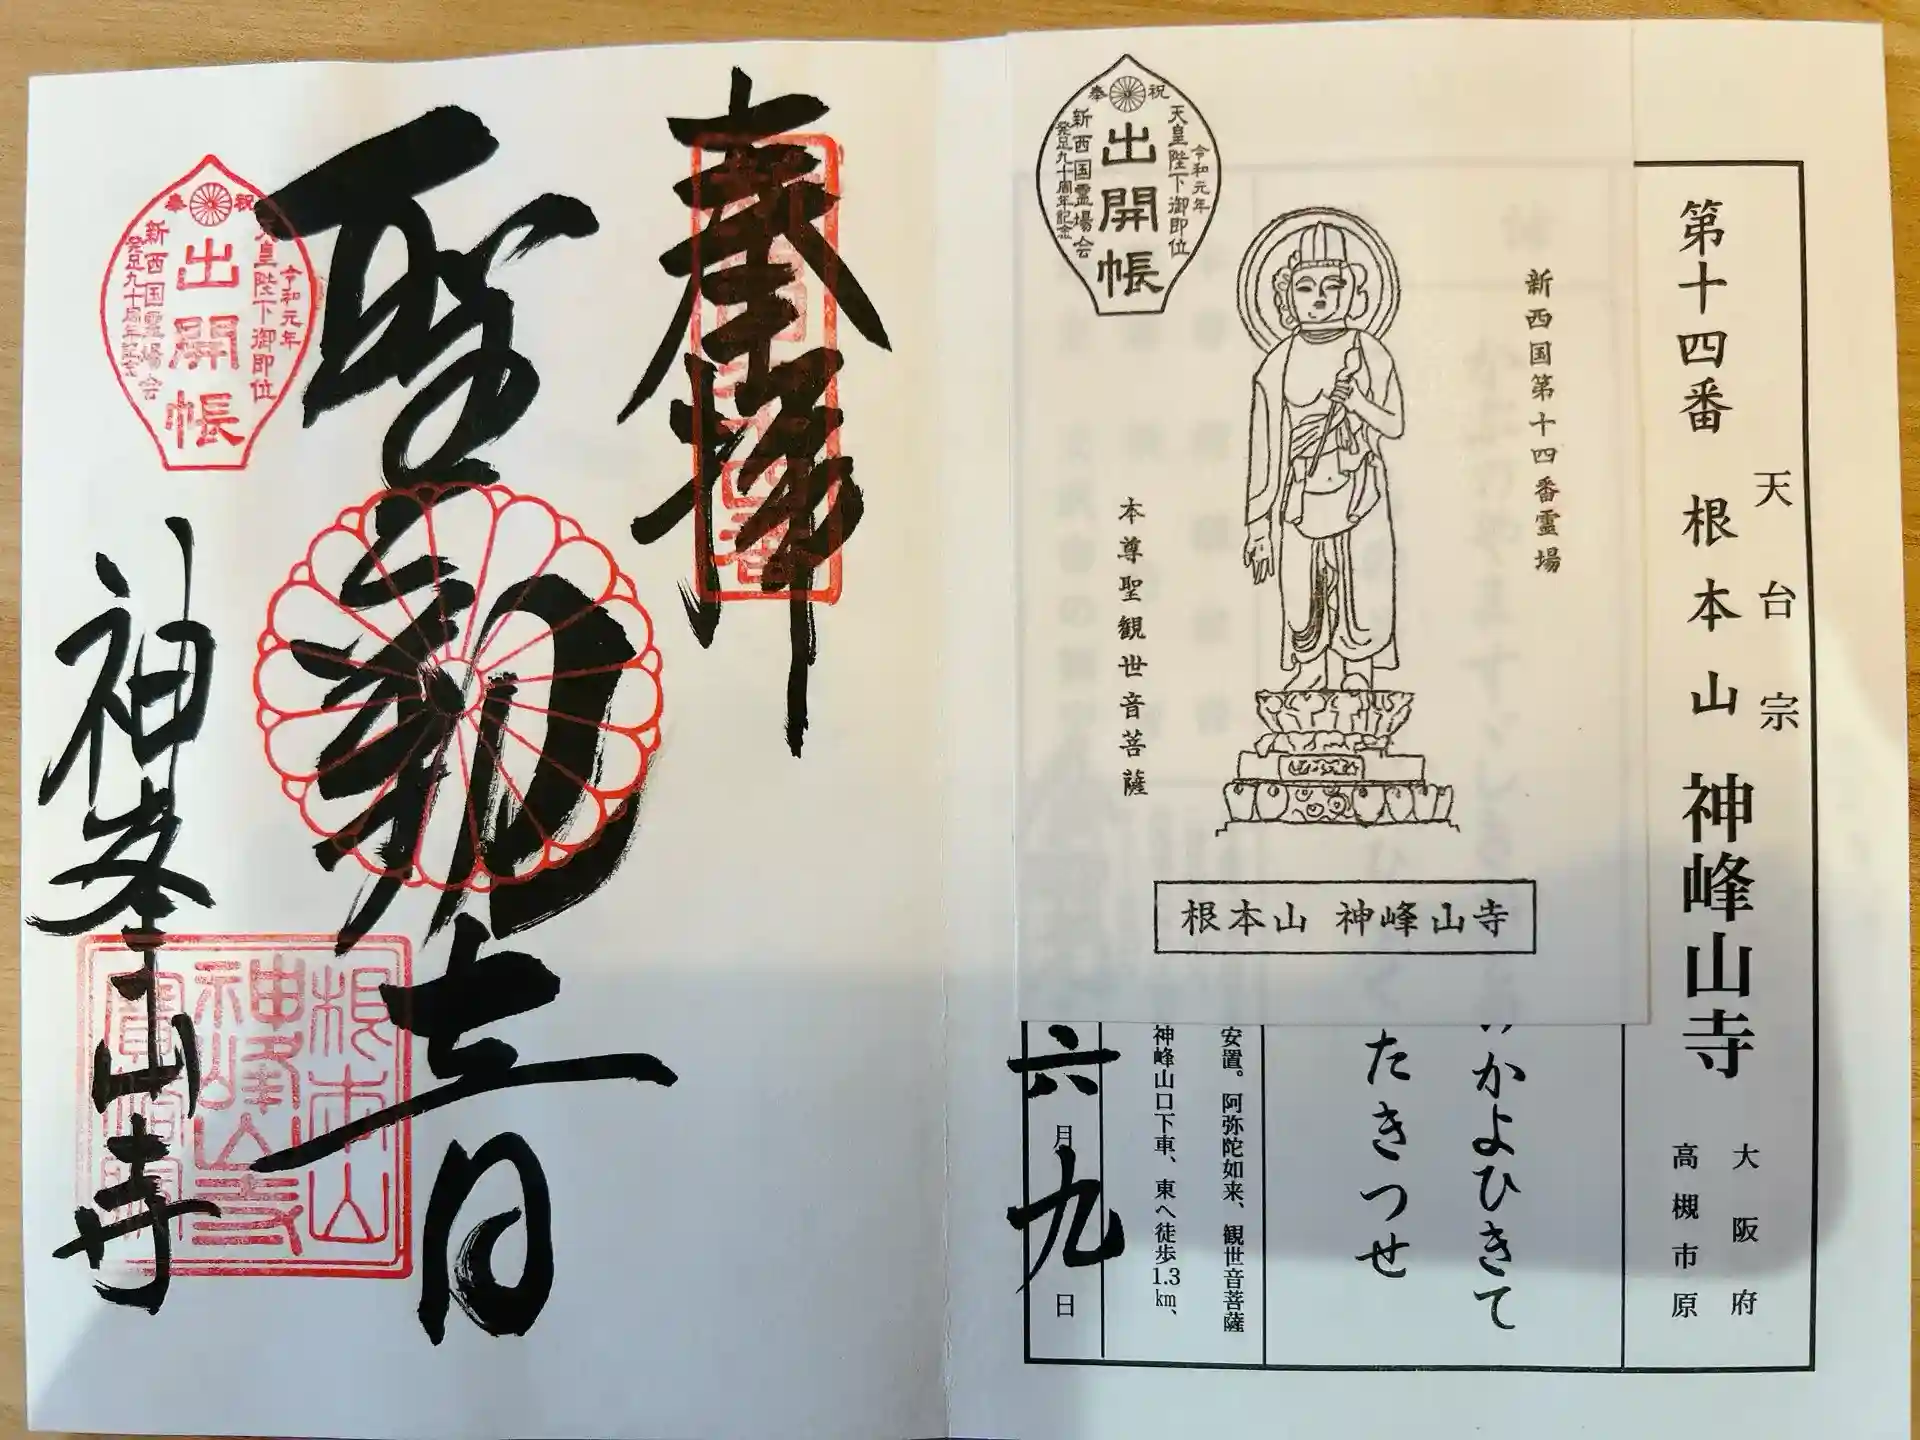 第十四番 根本山 神峰山寺
天台宗
大阪府
高槻市原
かよひきて
たきつせ
安置。阿弥陀如来、観世音菩薩
神峰山口下車、東へ徒歩1.3㎞、
六月九日
新西国第十四番霊場
本尊聖観世音菩薩
根本山 神峰山寺
奉祝
令和元年
天皇陛下御即位
出開帳
新西国霊場会
発足九十周年記念
奉拝
聖観音
神峯山寺
奉祝
令和元年
天皇陛下御即位
出開帳
新西国霊場会
発足九十周年記念
根本山
神峰山寺